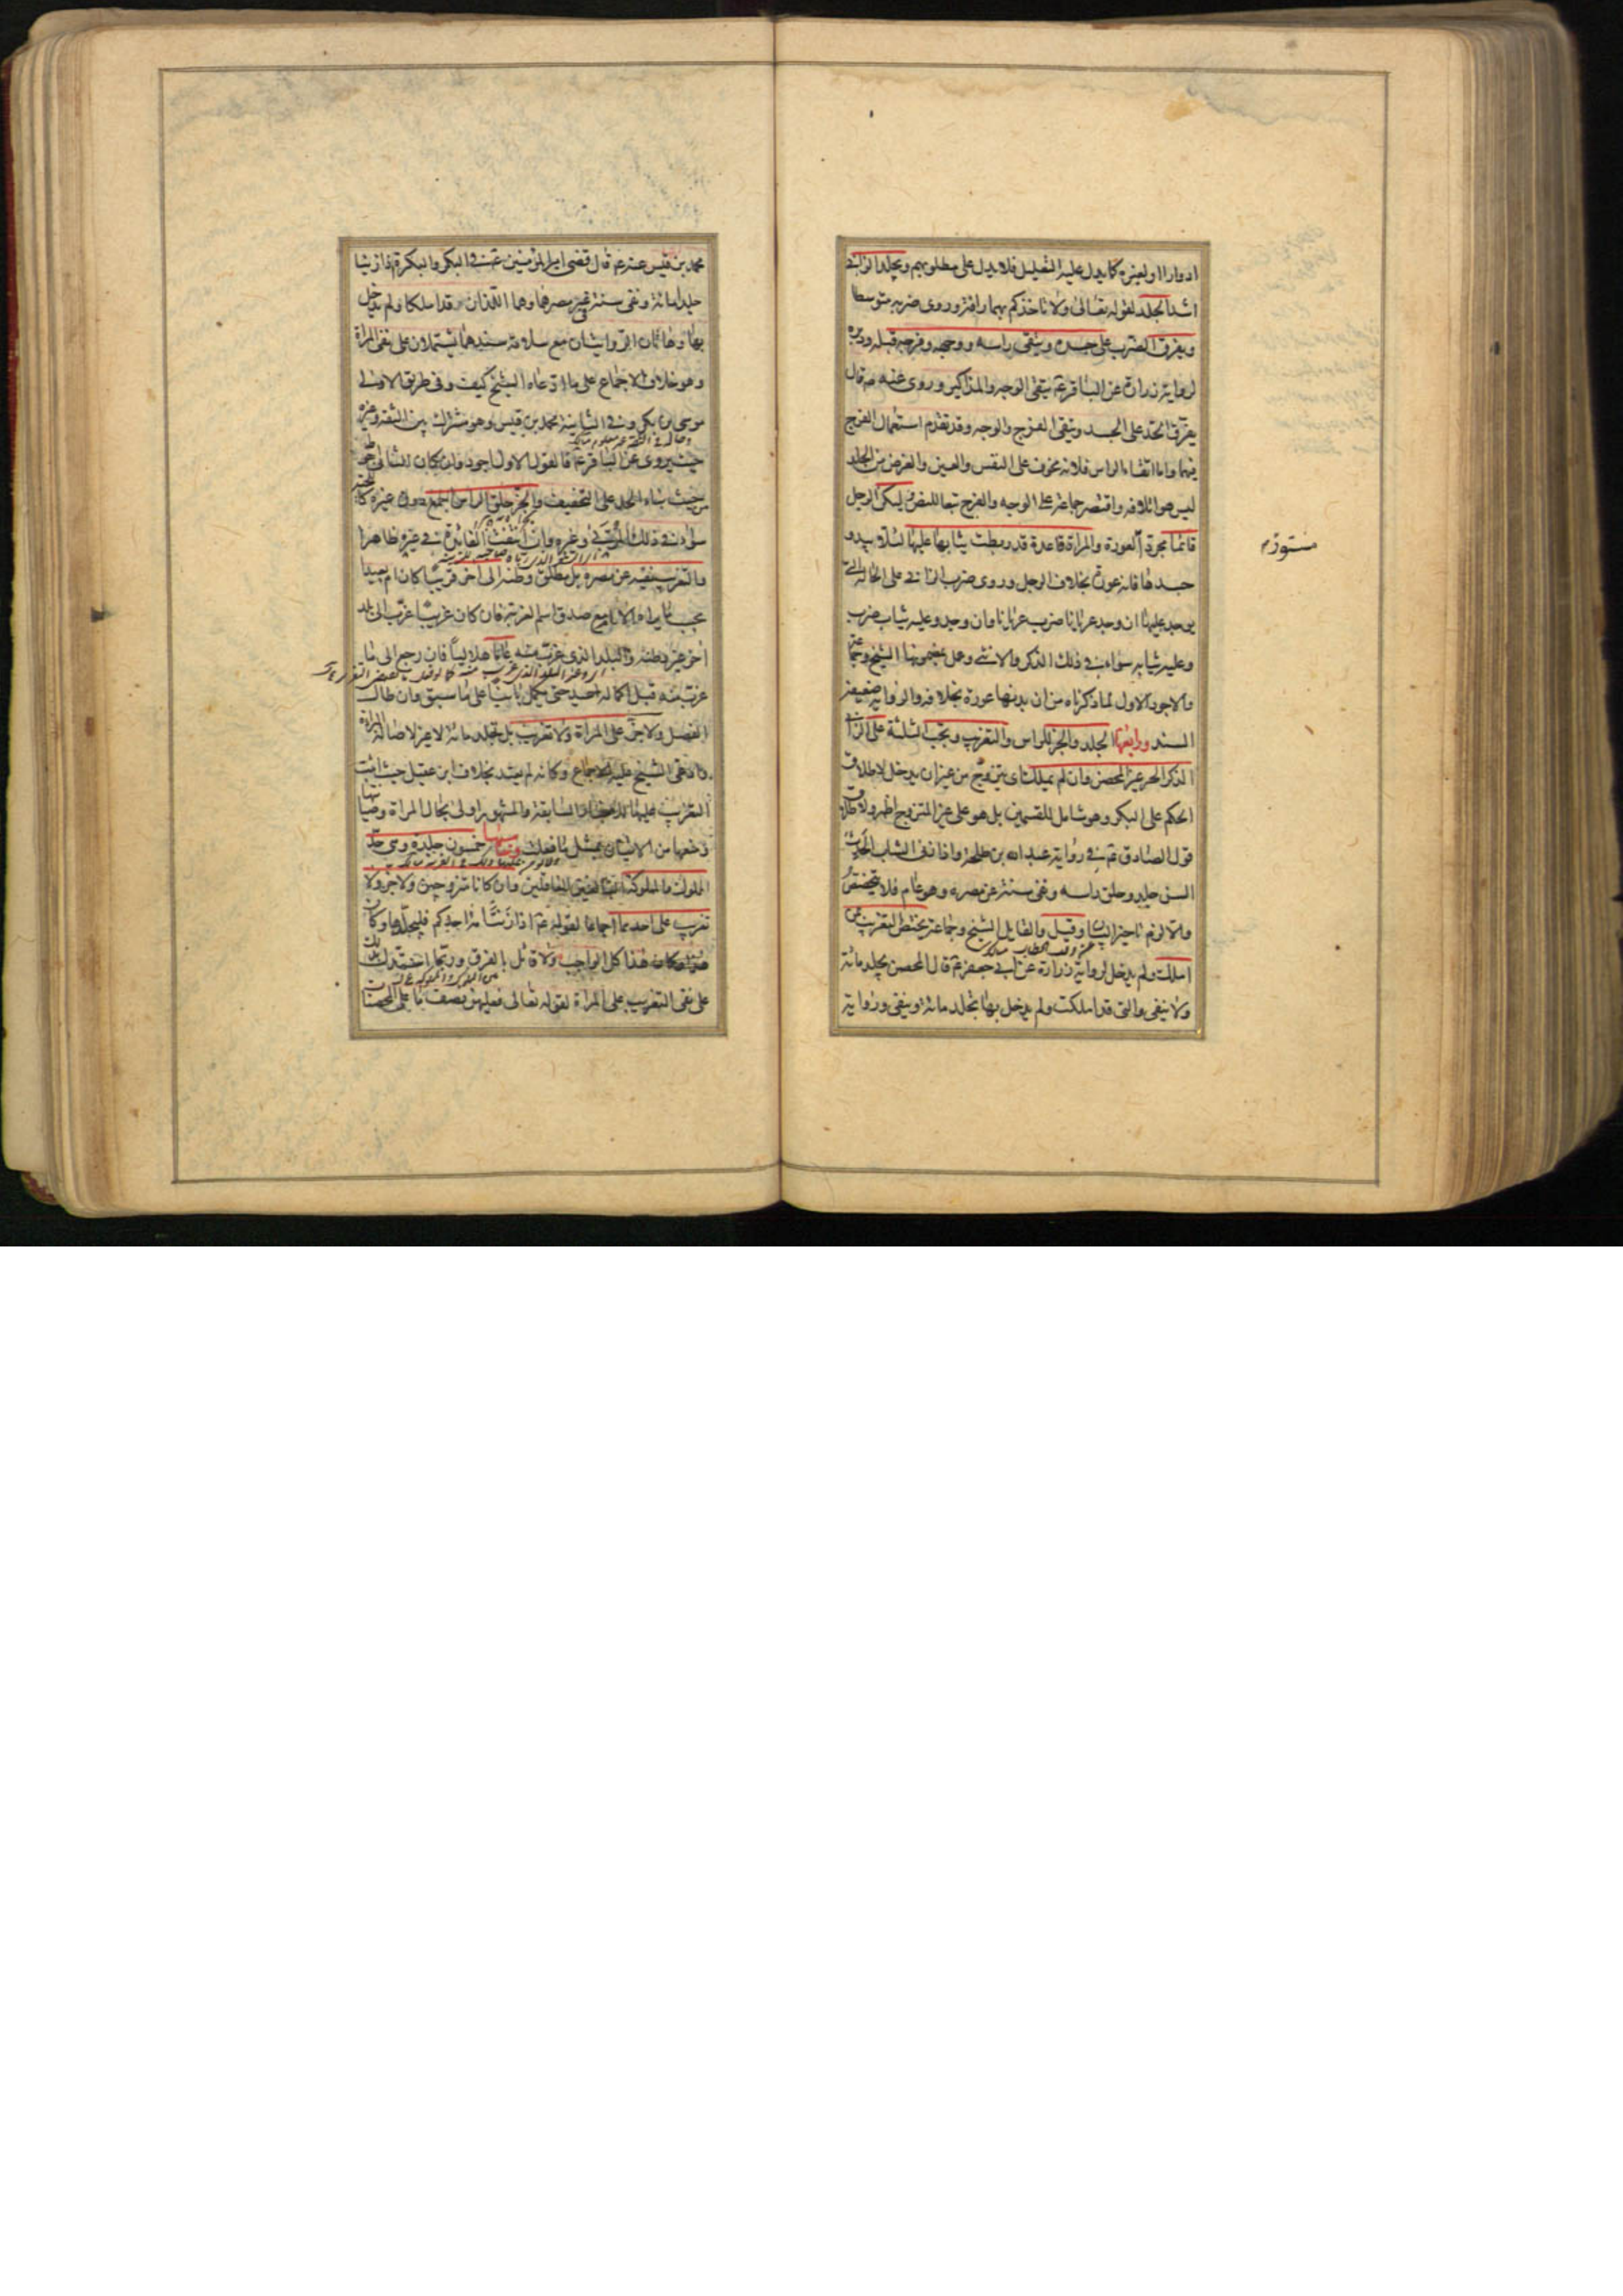 ادوارا او لغيره كما يدل عليه التعليل فلا يدل على مطلوبهم ويجلد الزاني
اشد الجلد لقوله تعالى ولا تاخذكم بهما رافة وروى ضربه متوسطا
ويفرق الضرب على جسده ويتقى راسه ووجهه وفرجه قبله ودبره
لرواية زرارة عن الباقر ع يتقى الوجه والمذاكير وروى عنه ع قال
يفرق الحد على الجسد ويتقى الفرج والوجه وقد تقدم استعمال الفرج
فيهما واما اتقاء الراس فلانه مخوف على النفس والعين والغرض من الجلد
ليس هو اتلافه واقتصر جماعة على الوجه والفرج تبعا للنص وليكن الرجل
قائما مجردا العورة والمراة قاعدة قد ربطت ثيابها عليها لئلا يبدو
جسدها فانه عورة بخلاف الرجل وروى ضرب الزاني على الحالة التى
يوجد عليها ان وجد عريانا ضرب عريانا وان وجد وعليه ثياب ضرب
وعليه ثيابه سواء في ذلك الذكر والانثى وعمل بمضمونها الشيخ وجماعة
والاجود الاول لما ذكرناه من ان بدنها عورة بخلافه والرواية ضعيفة
السند ورابعها الجلد والجز للراس والتغريب ويجب الثلثة على الزاني
الذكر الحر غير المحصن وان لم يملك اى يتزوج من غير ان يدخل لاطلاق
الحكم على البكر وهو شامل للقسمين بل هو على غير المتزوج اظهر ولاطلاق
قول الصادق ع في رواية عبد الله بن طلحة واذا زنى الشاب الحدث
السن جلد وحلق راسه ونفى سنة عن مصره وهو عام فلا يتخصص
والا لزم تاخير البيان وقيل والقايل الشيخ وجماعة يختص التغريب بمن
املك ولم يدخل لرواية زرارة عن ابى جعفر ع قال المحصن يجلد مائة
ولا ينفى والتى قد املكت ولم يدخل بها تجلد مائة وينفى ورواية
محمد بن قيس عنه ع قال قضى امير المؤمنين ع في البكر والبكرة اذا زنيا
جلد مائة ونفى سنة في غير مصرهما وهما اللذان قد املكا ولم يدخل
بها وهاتان الروايتان مع سلامة سندهما يشتملان على نفى المراة
وهو خلاف الاجماع على ما ادعاه الشيخ كيف وفى طريق الاولى
موسى بن بكر وفي الثانية محمد بن قيس وهو مشترك بين الثقة وغيره
حيث يروى عن الباقر ع فالقول الاول اجود وان كان الثانى احوط
من حيث بناء الحد على التخفيف والجز حلق الراس اجمع دون غيره كاللحية
سواء في ذلك المربى وغيره وان انتفت الفائدة في غيره ظاهرا
والتغريب نفيه عن مصره بل مطلق وطنه الى اخر قريبا كان ام بعيدا
بحسب ما يراه الامام مع صدق اسم الغربة فان كان غريبا غرب الى بلد
اخر غير وطنه والبلد الذى غرب منه عاما هلاليا فان رجع الى ما
غرب منه قبل اكماله اعيد حتى يكمل بانيا على ما سبق وان طال
الفصل ولا جز على المراة ولا تغريب بل تجلد مائة لا غير لاصالة البراءة
وادعى الشيخ عليه الاجماع وكانه لم يعتد بخلاف ابن عقيل حيث اثبت
التغريب عليها للاخبار السابقة والمشهور اولى بحال المراة وصيانتها
ومنعها من الاتيان بمثل ما فعلت وخامسها خمسون جلدة وهى حد
المملوك والمملوكة البالغين العاقلين وان كانا متزوجين ولا جز ولا
تغريب على احدهما اجماعا لقوله ع اذا زنت امة احدكم فليجلدها وكان
هذا كل الواجب ولا قائل بالفرق وربما استدل بذلك
على نفى التغريب على المراة لقوله تعالى فعليهن نصف ما على المحصنات